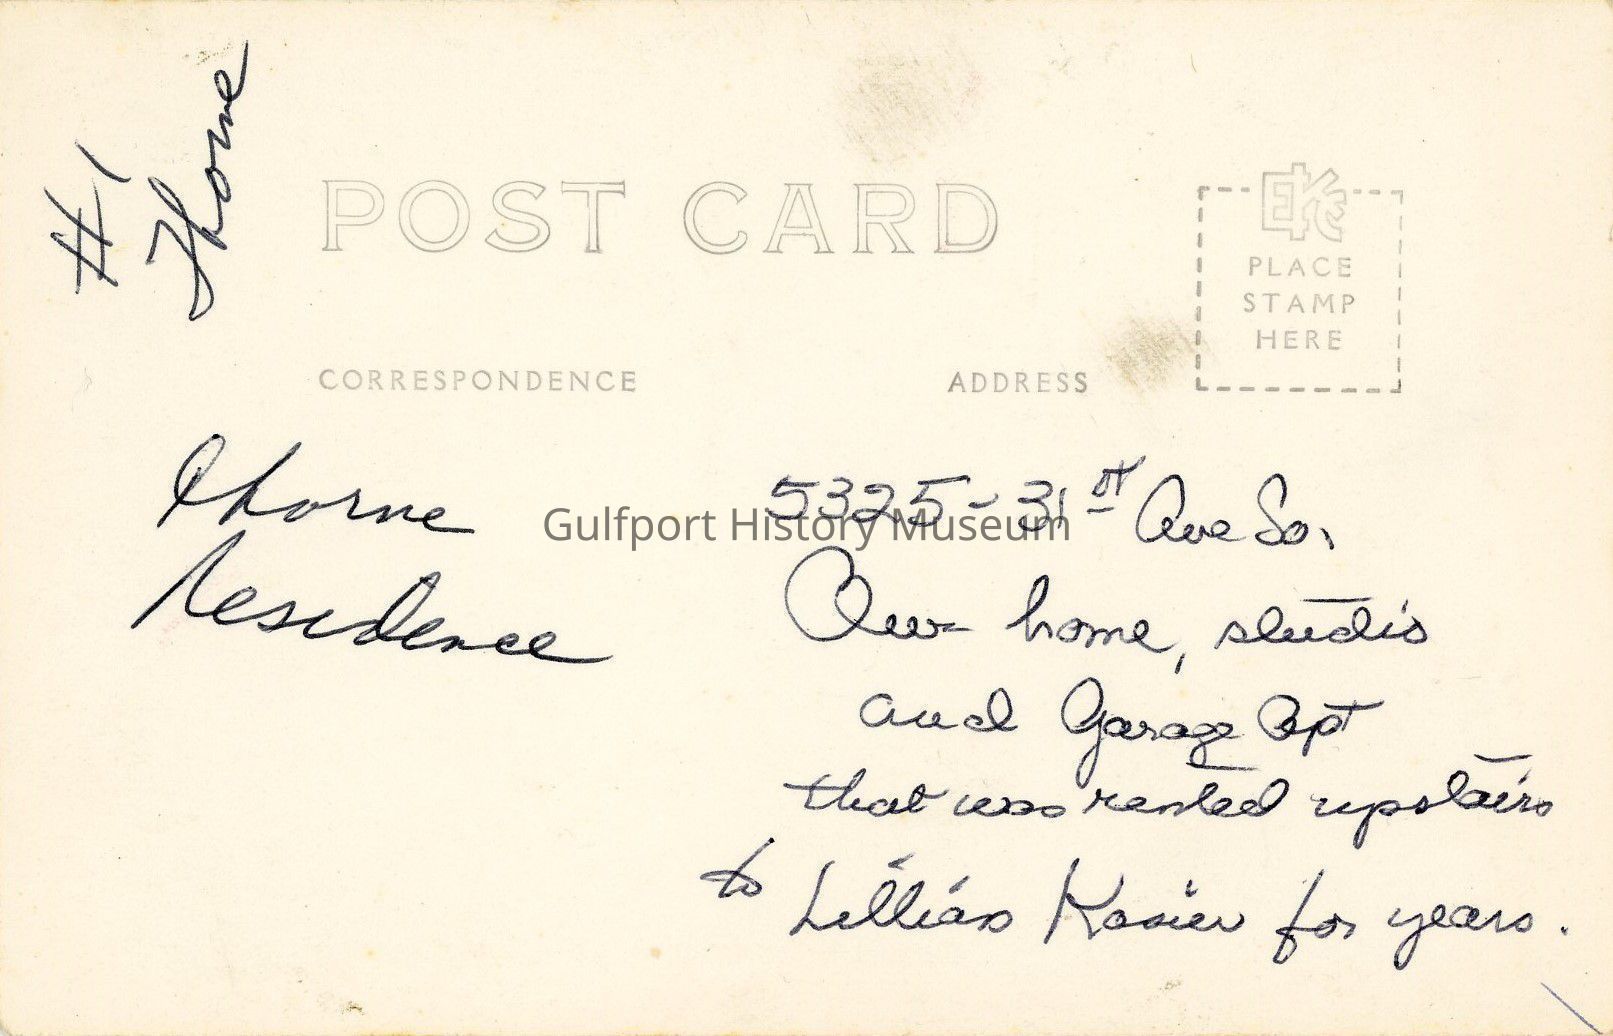 #1
Thorne
POST CARD
EKC
PLACE
STAMP
HERE
CORRESPONDENCE
ADDRESS
Thorne
Residence
5325-31st Ave So.
Our home, studio
and Garage Apt
that was rented upstairs
to Lillian for years.
Gulfport History Museum